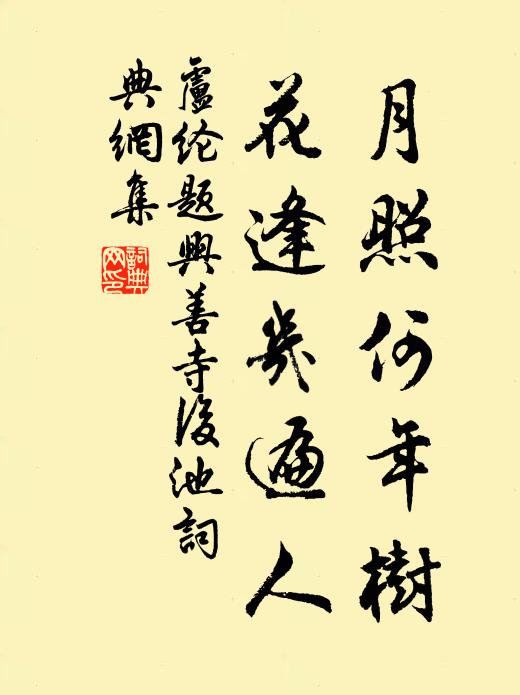 月照何年樹
花逢幾遍人
盧纶題興善寺後池詞
典網集
詞典
网印